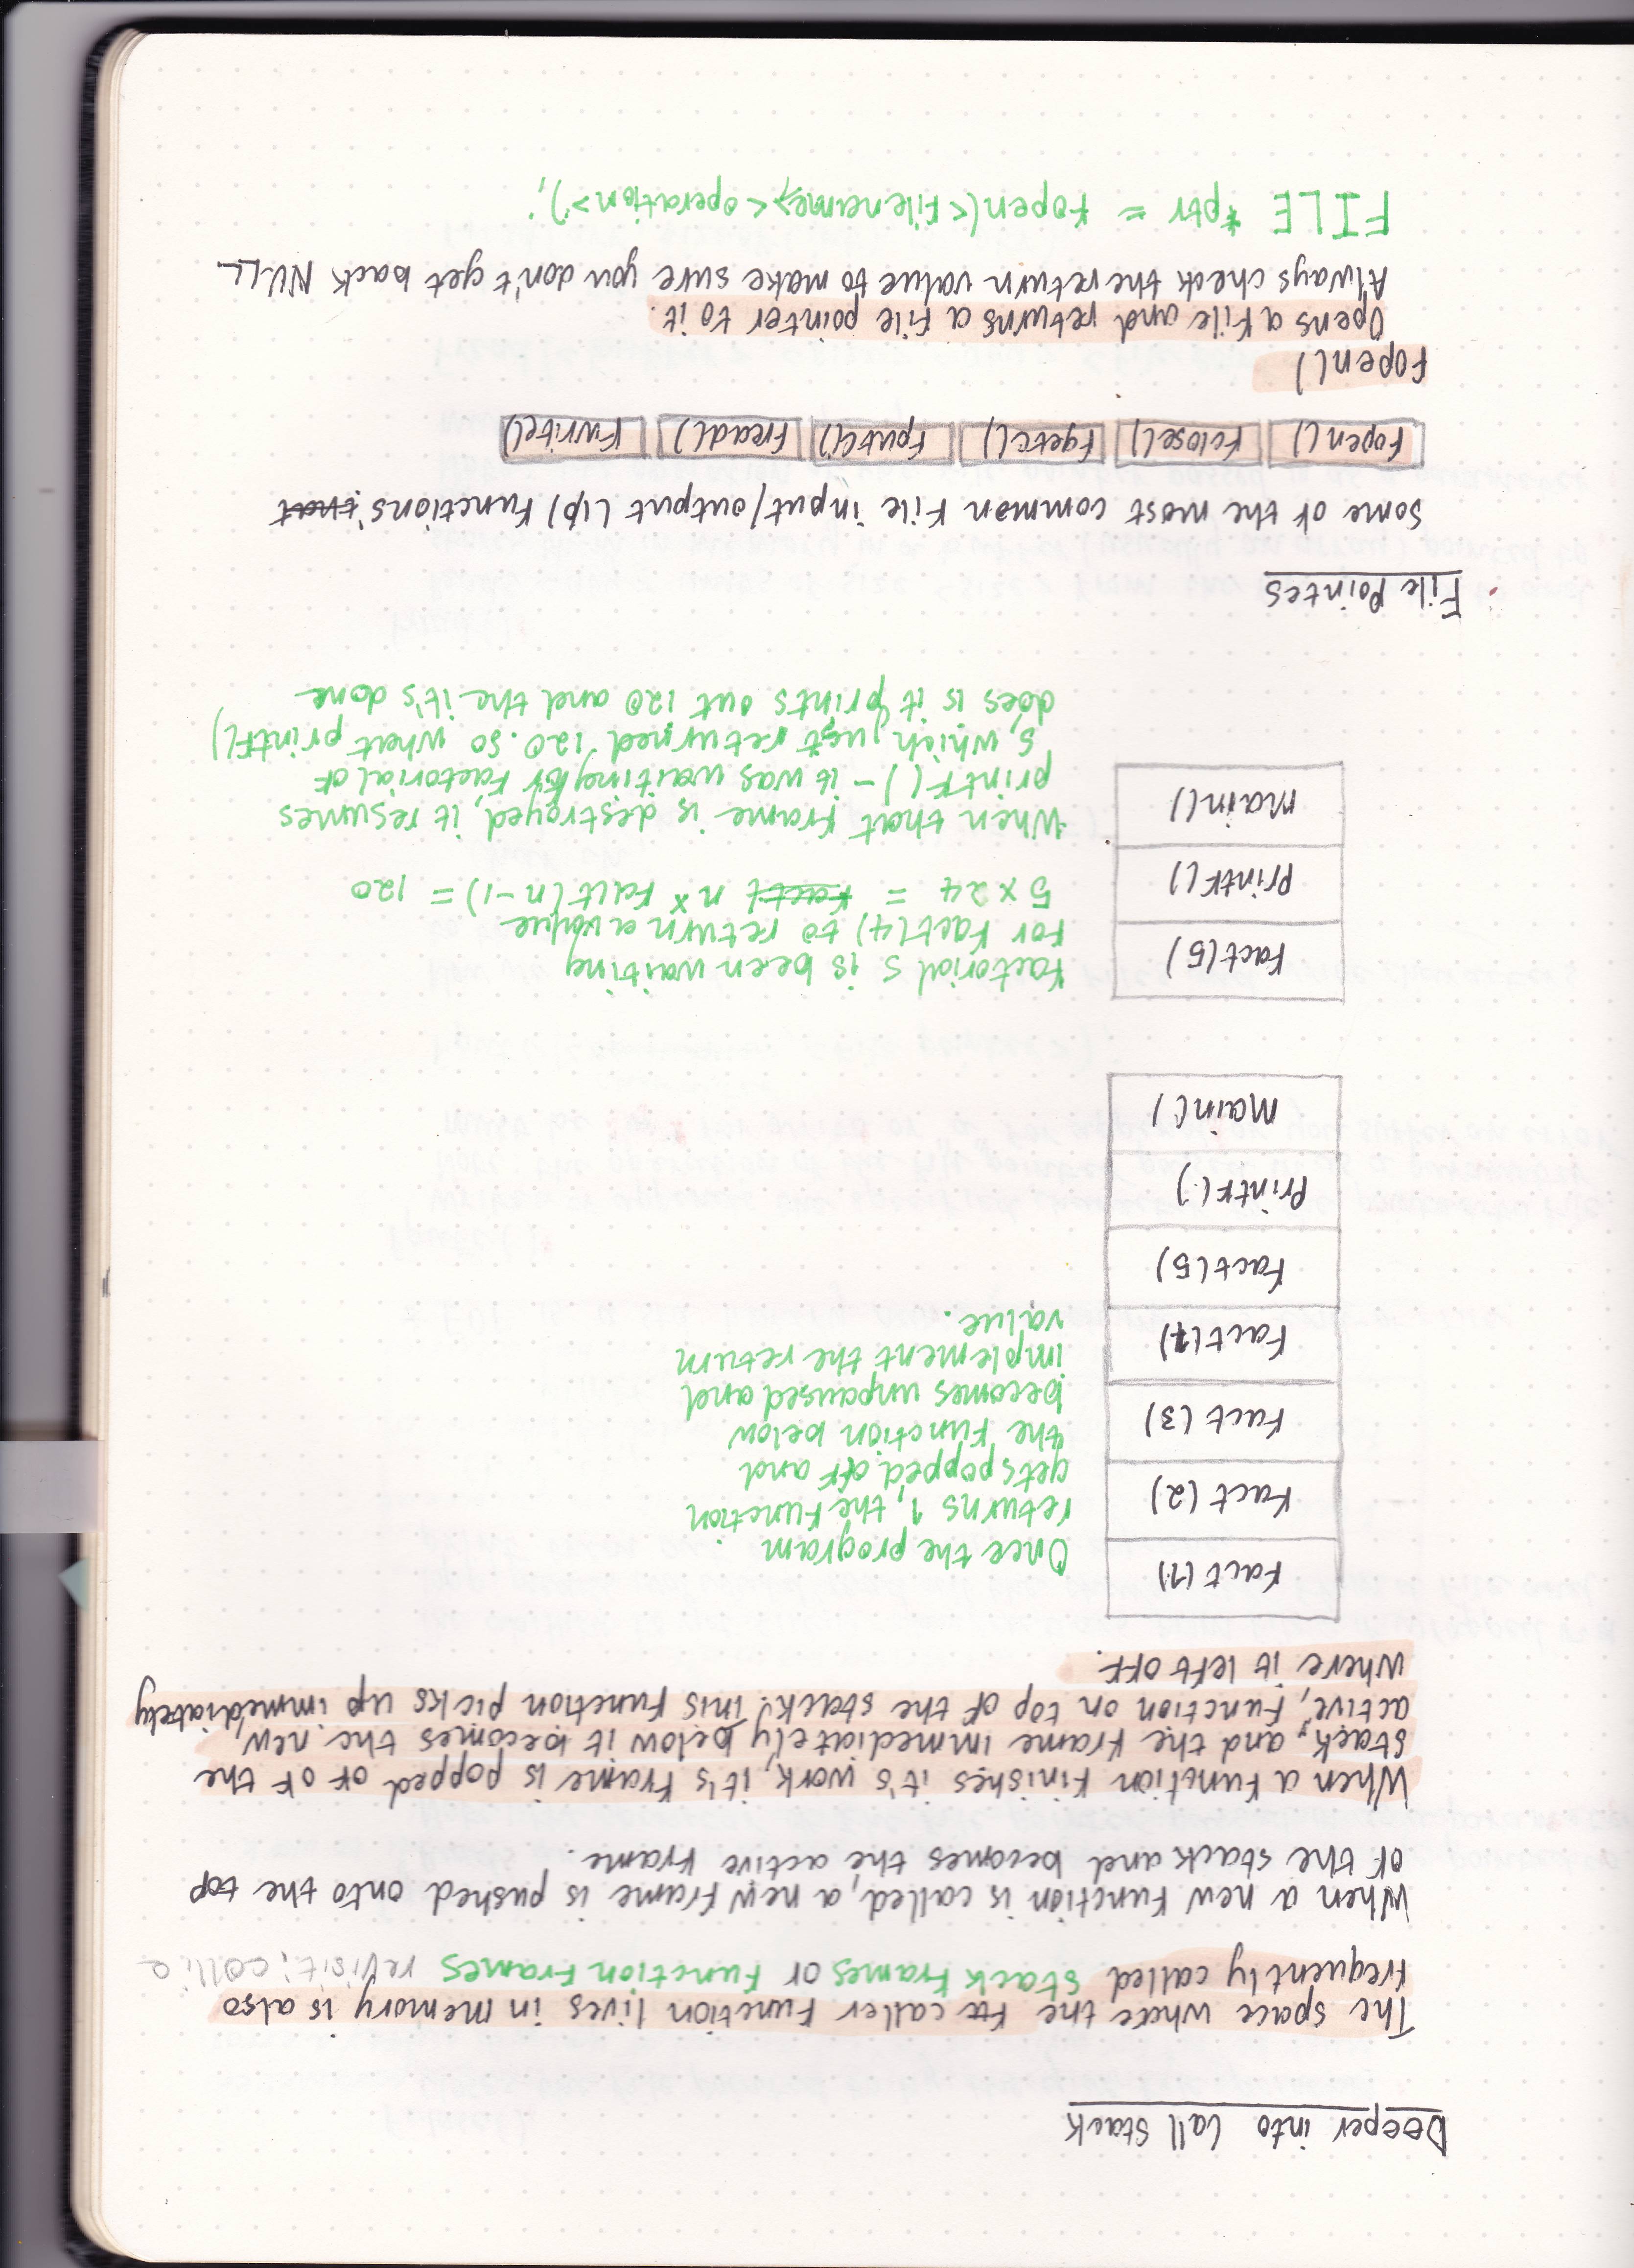 Deeper into Call Stack
The space where the caller Function lives in memory is also
frequently called Stack Frames or Function Frames revisit: collie
When a new function is called, a new frame is pushed onto the top
of the stack and becomes the active frame.
When a function finishes it's work, it's frame is popped of of the
stack, and the frame immediately below it becomes the new,
active, function on top of the stack. This function picks up immediately
where it left off.
Fact(1)
Fact(2)
Fact(3)
Fact(4)
Fact(5)
Printf()
Main()
Once the program
returns 1, the function
gets popped off and
the function below
becomes unpaused and
implement the return
value.
Fact(5)
Printf()
Main()
Factorial 5 is been waiting
for Fact(4) to return a value
5 x 24 = fact( n x Fact(n-1) = 120
When that frame is destroyed, it resumes
printf() - it was waiting for factorial of
5, which just returned 120. So what printf()
does is it prints out 120 and the it's done
File Pointes
Some of the most common file input/output (I/O) functions that
fopen() fclose() fgetc() fputc() fread() fwrite()
fopen()
Opens a file and returns a file pointer to it.
Always check the return value to make sure you don't get back NULL
FILE *ptr = fopen(<filename>, <operation>);